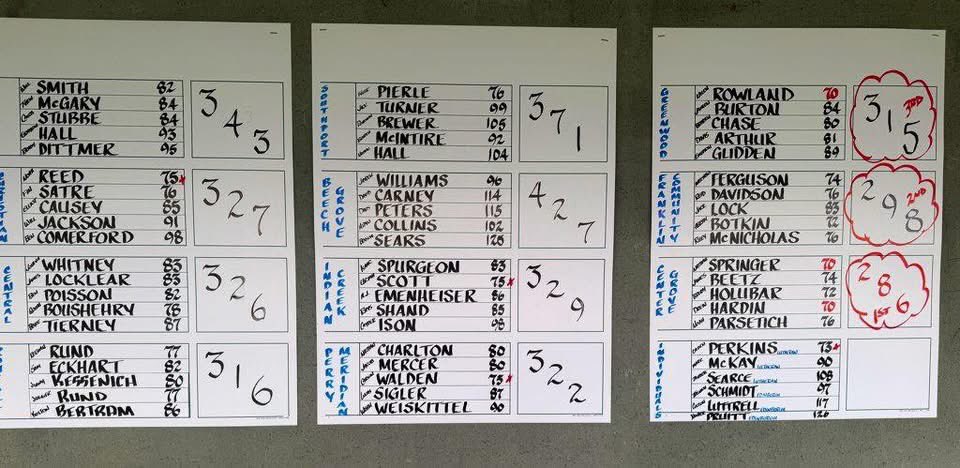 SMITH 82
McGARY 84
STUBBE 84
HALL 93
DITTMER 95
343
REED 75*
SATRE 76
CAUSEY 85
JACKSON 91
COMERFORD 98
327
CENTRAL
WHITNEY 83
LOCKLEAR 83
POISSON 82
BOUSHEHRY 78
TIERNEY 87
326
RUND 77
ECKHART 82
KESSENICH 80
RUND 77
BERTRAM 86
316
SOUTHPORT
PIERLE 76
TURNER 99
BREWER 105
McINTIRE 92
HALL 104
371
BEECH GROVE
WILLIAMS 96
CARNEY 114
PETERS 115
COLLINS 102
SEARS
427
INDIAN CREEK
SPURGEON 83
SCOTT 75*
EMENHEISER 86
SHAND 85
ISON 98
329
PERRY MERIDIAN
CHARLTON 80
MERCER 80
WALDEN 75*
SIGLER 87
WEISKITTEL 90
322
GREENWOOD
ROWLAND 70
BURTON 84
CHASE 80
ARTHUR 81
GLIDDEN 89
315 3RD
FRANKLIN COMMUNITY
FERGUSON 74
DAVIDSON 76
LOCK 83
BOTKIN 72
McNICHOLAS 76
298 2ND
CENTER GROVE
SPRINGER 70
BEETZ 74
HOLUBAR 72
HARDIN 70
PARSETICH 76
286 1ST
INDIVIDUALS
PERKINS LUTHERAN 73*
McKAY LUTHERAN 90
SEARCE LUTHERAN 108
SCHMIDT EDINBURGH 97
LUTTRELL EDINBURGH 117
PRUITT EDINBURGH 126